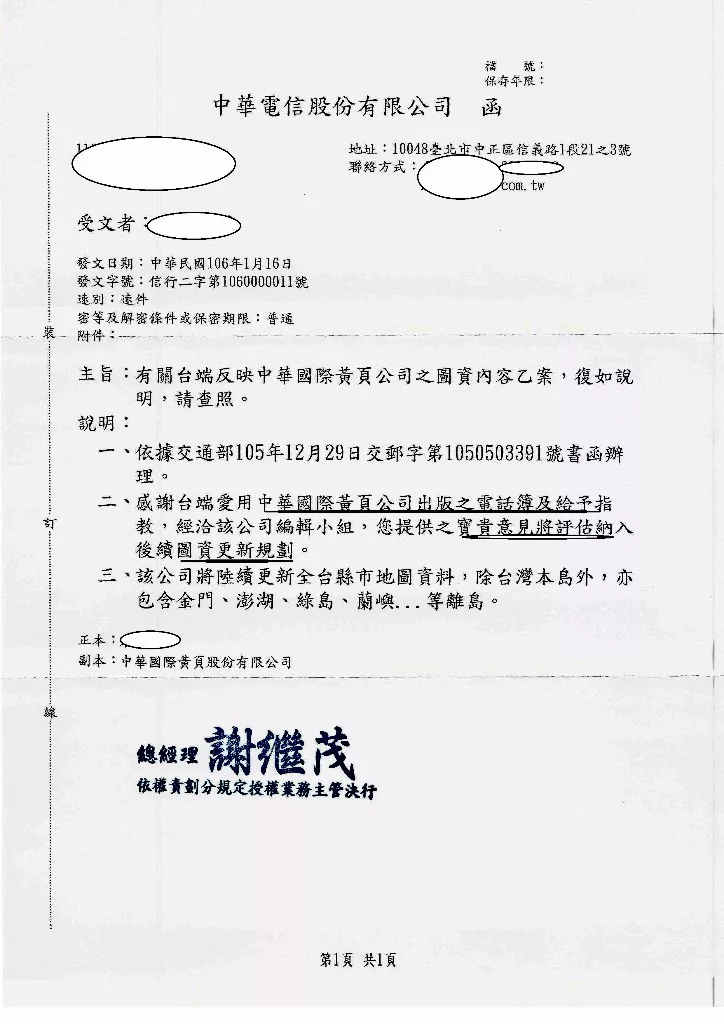 檔　　號：
保存年限：
中華電信股份有限公司　函
地址：10048臺北市中正區信義路1段21之3號
聯絡方式：
com.tw
受文者：
發文日期：中華民國106年1月16日
發文字號：信行二字第1060000011號
速別：速件
密等及解密條件或保密期限：普通
附件：
裝
主旨：有關台端反映中華國際黃頁公司之圖資內容乙案，復如說
明，請查照。
說明：
一、依據交通部105年12月29日交郵字第1050503391號書函辦
理。
二、感謝台端愛用中華國際黃頁公司出版之電話簿及給予指
教，經洽該公司編輯小組，您提供之寶貴意見將評估納入
訂
後續圖資更新規劃。
三、該公司將陸續更新全台縣市地圖資料，除台灣本島外，亦
包含金門、澎湖、綠島、蘭嶼...等離島。
正本：
副本：中華國際黃頁股份有限公司
線
總經理 謝繼茂
依權責劃分規定授權業務主管決行
第1頁 共1頁